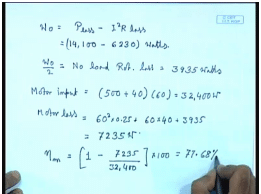 W₀ = Pₗₒₛₛ - I²R loss
= (14,100 - 6230) Watts.
W₀/2 = No load Rot. loss = 3935 Watts
Motor input = (500 + 40) (60) = 32,400 W
Motor loss = 60² × 0.25 + 60 × 40 + 3935
= 7235 W
ηₘ = [1 - 7235/32,400] × 100 = 77.68%